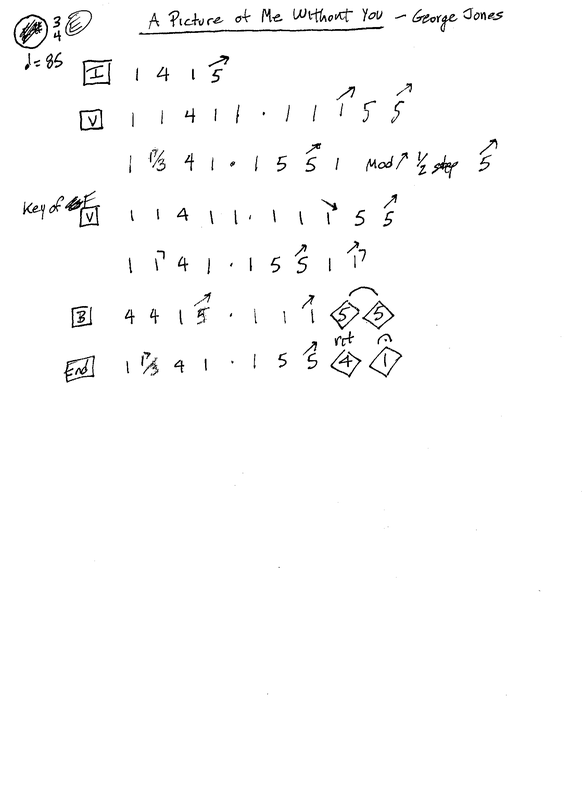 A Picture of Me Without You – George Jones
3/4 E
♩= 85
I 1 4 1 5↗
V 1 1 4 1 1 · 1 1 1↗ 5 5↗
1 1⁷/3 4 1 · 1 5 5↗ 1 Mod↗ 1/2 step 5↗
Key of E
V 1 1 4 1 1 · 1 1 1↘ 5 5↗
1 1⁷ 4 1 · 1 5 5↗ 1 1⁷↗
B 4 4 1 5↗ · 1 1 1↗ 5 5
rit
End 1 1⁷/3 4 1 · 1 5 5↗ 4 1